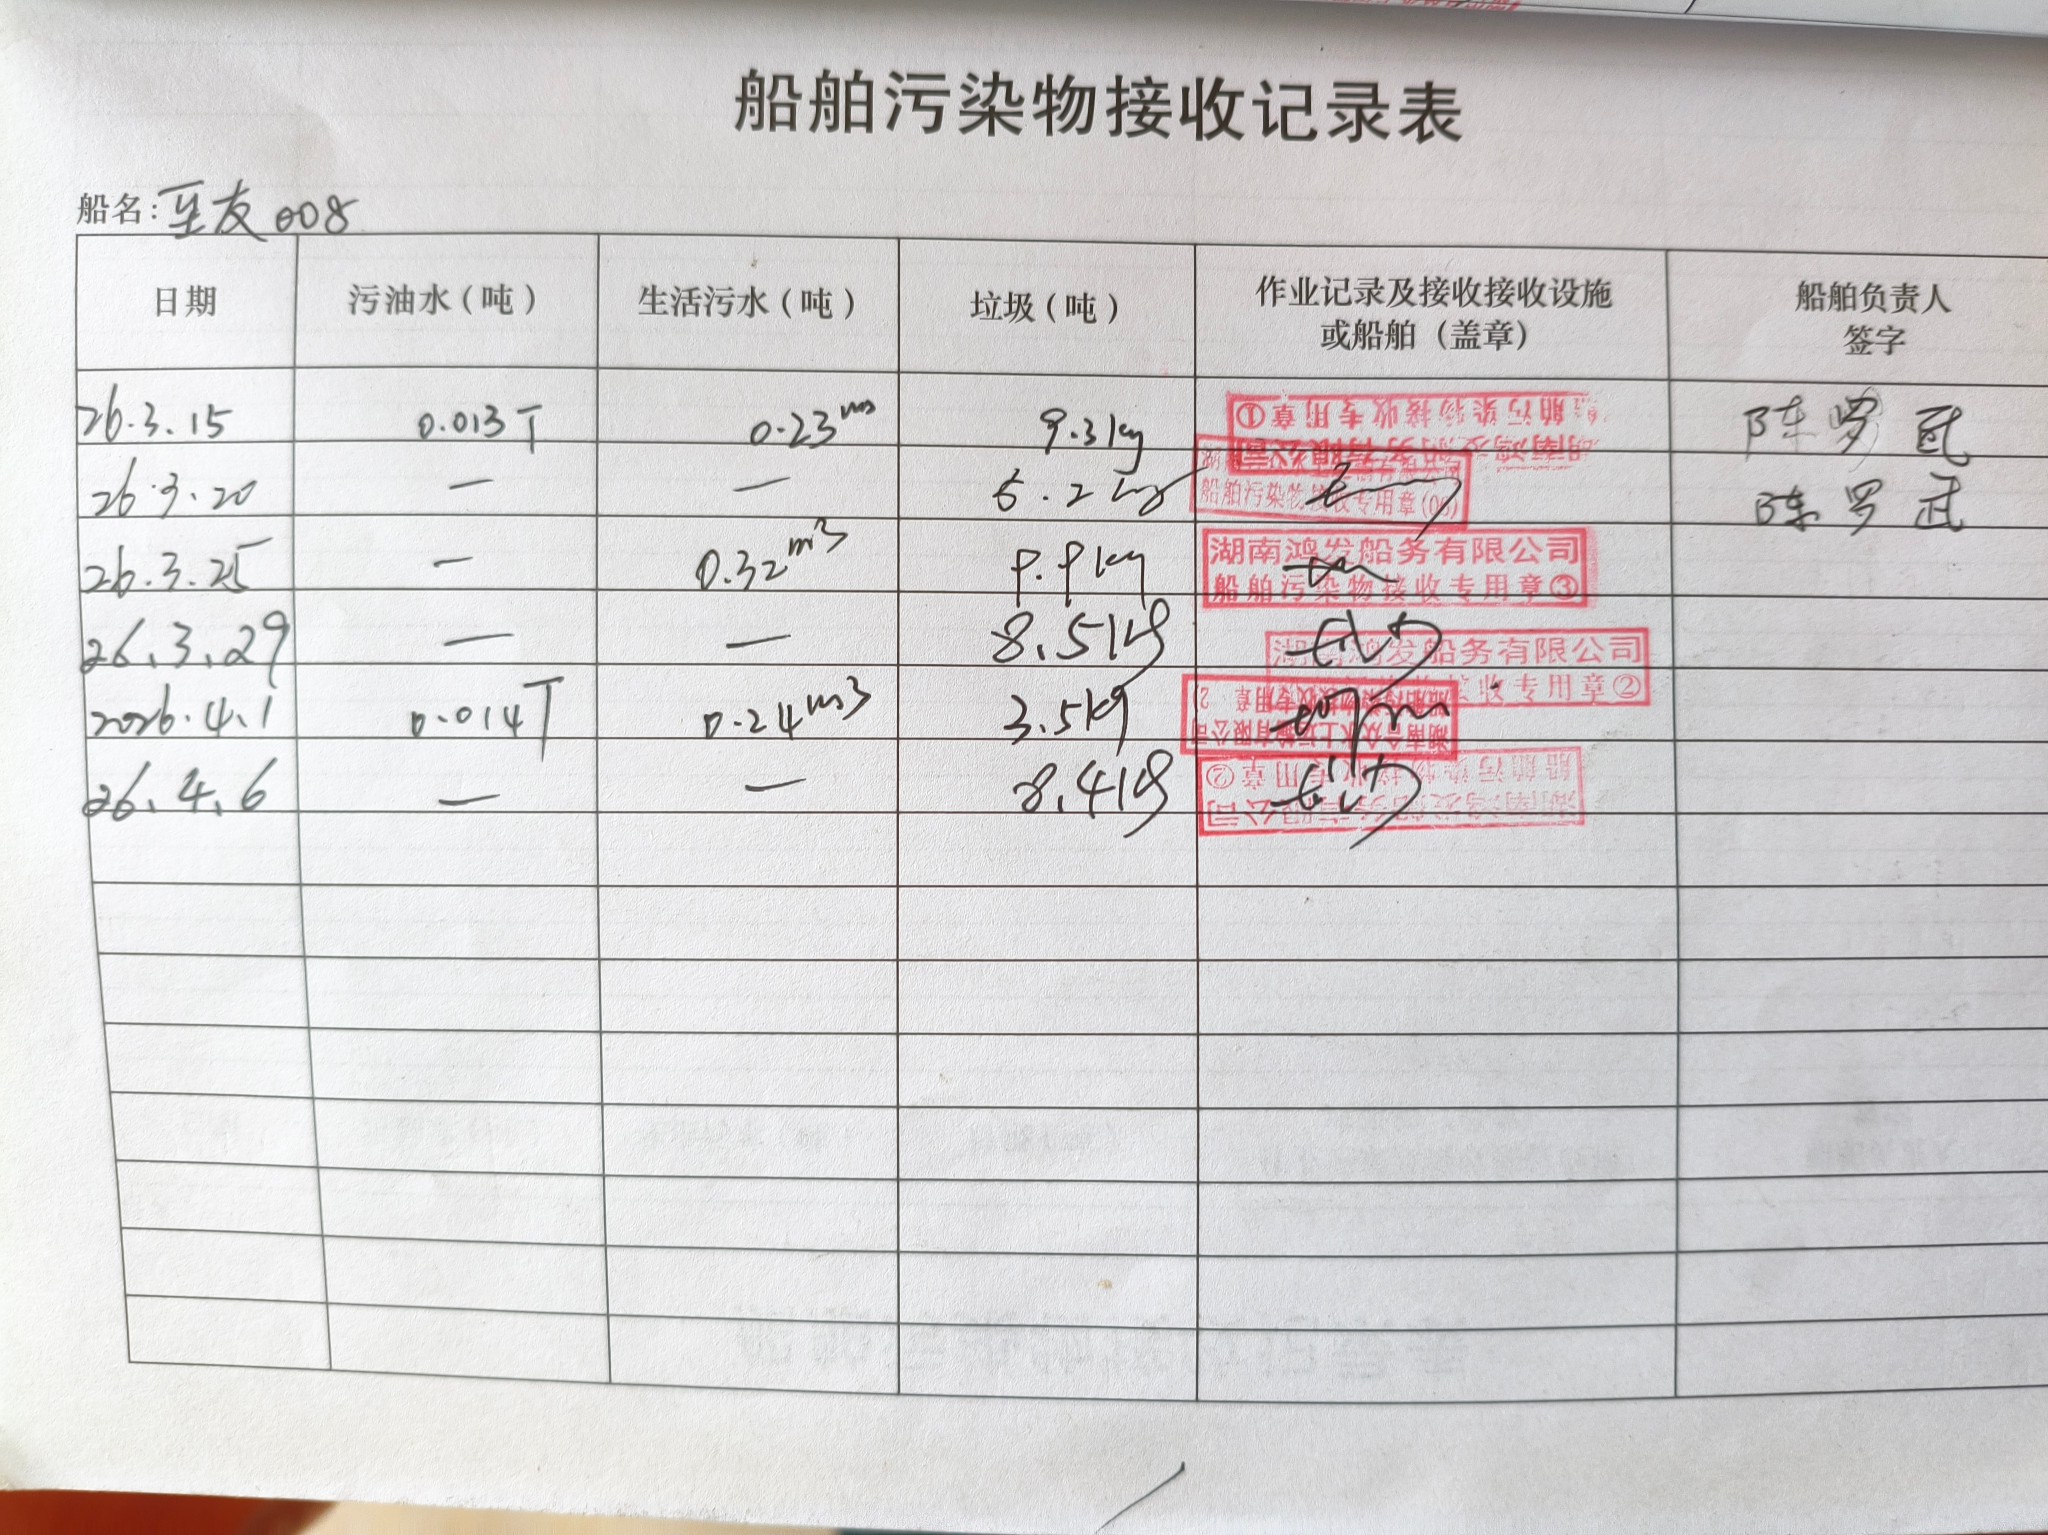 船舶污染物接收记录表
船名: 至友008
日期 污油水（吨） 生活污水（吨） 垃圾（吨） 作业记录及接收接收设施或船舶（盖章） 船舶负责人签字
26.3.15 0.013T 0.23m³ 9.3kg 湖南鸿发船务有限公司 船舶污染物接收专用章① 陈罗武
26.3.20 — — 5.2kg 船舶污染物接收专用章(06) 陈罗武
26.3.25 — 0.32m³ 9.9kg 湖南鸿发船务有限公司 船舶污染物接收专用章③
26.3.29 — — 8.5kg 湖南鸿发船务有限公司 接收专用章②
2026.4.1 0.014T 0.24m³ 3.5kg
26.4.6 — — 8.4kg 湖南鸿发船务有限公司 船舶污染物接收专用章②